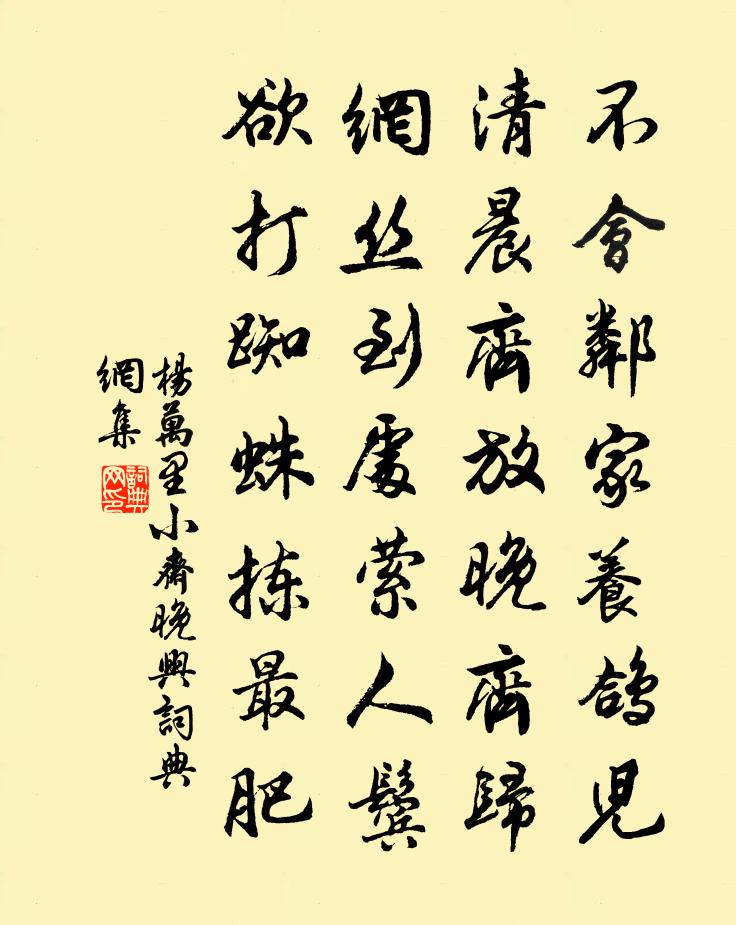 不會鄰家養鴿兒
清晨齊放晚齊歸
網丝到處萦人鬓
欲打蜘蛛拣最肥
楊萬里小齋晚興詞典
網集
詞典网印